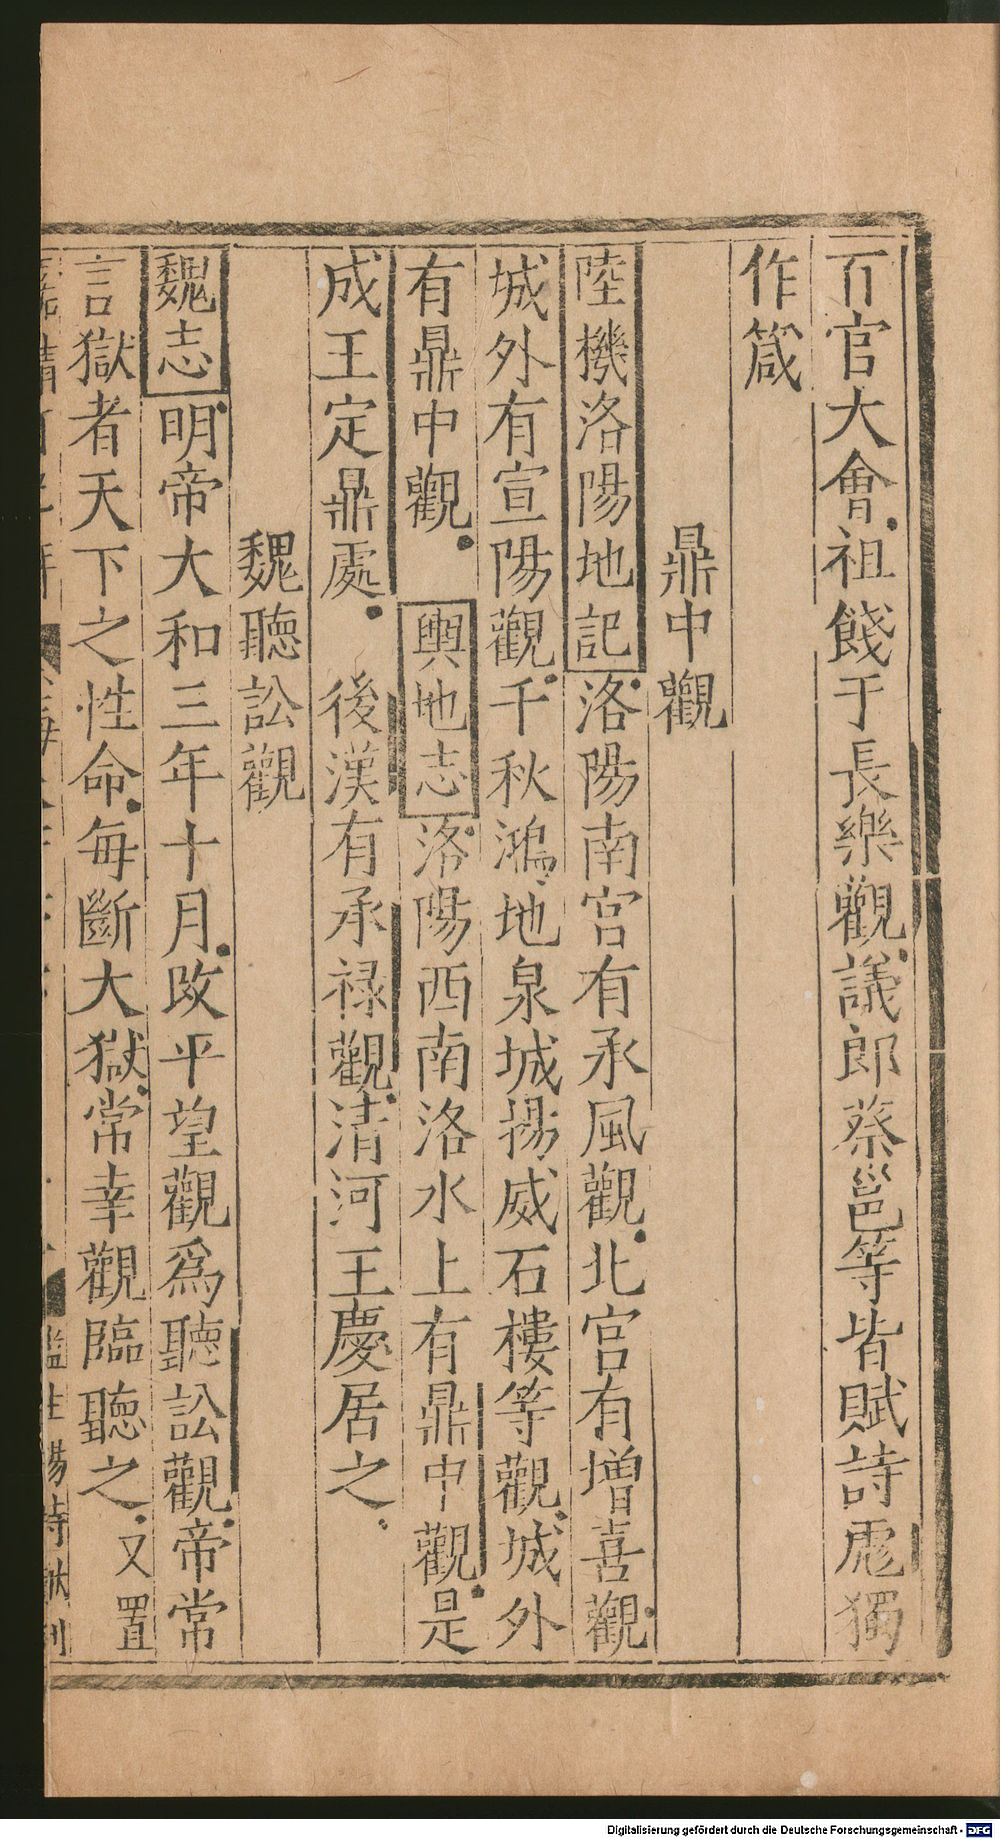 百官大會祖餞于長樂觀議郎蔡邕等皆賦詩彪獨
作箴
鼎中觀
陸機洛陽地記洛陽南宮有承風觀北宮有增喜觀
城外有宣陽觀千秋鴻地泉城揚威石樓等觀城外
有鼎中觀 輿地志洛陽西南洛水上有鼎中觀是
成王定鼎處 後漢有承祿觀清河王慶居之
魏聽訟觀
魏志明帝大和三年十月改平望觀爲聽訟觀帝常
言獄者天下之性命每斷大獄常幸觀臨聽之又置
嘉靖
監生楊
Digitalisierung gefördert durch die Deutsche Forschungsgemeinschaft - DFG